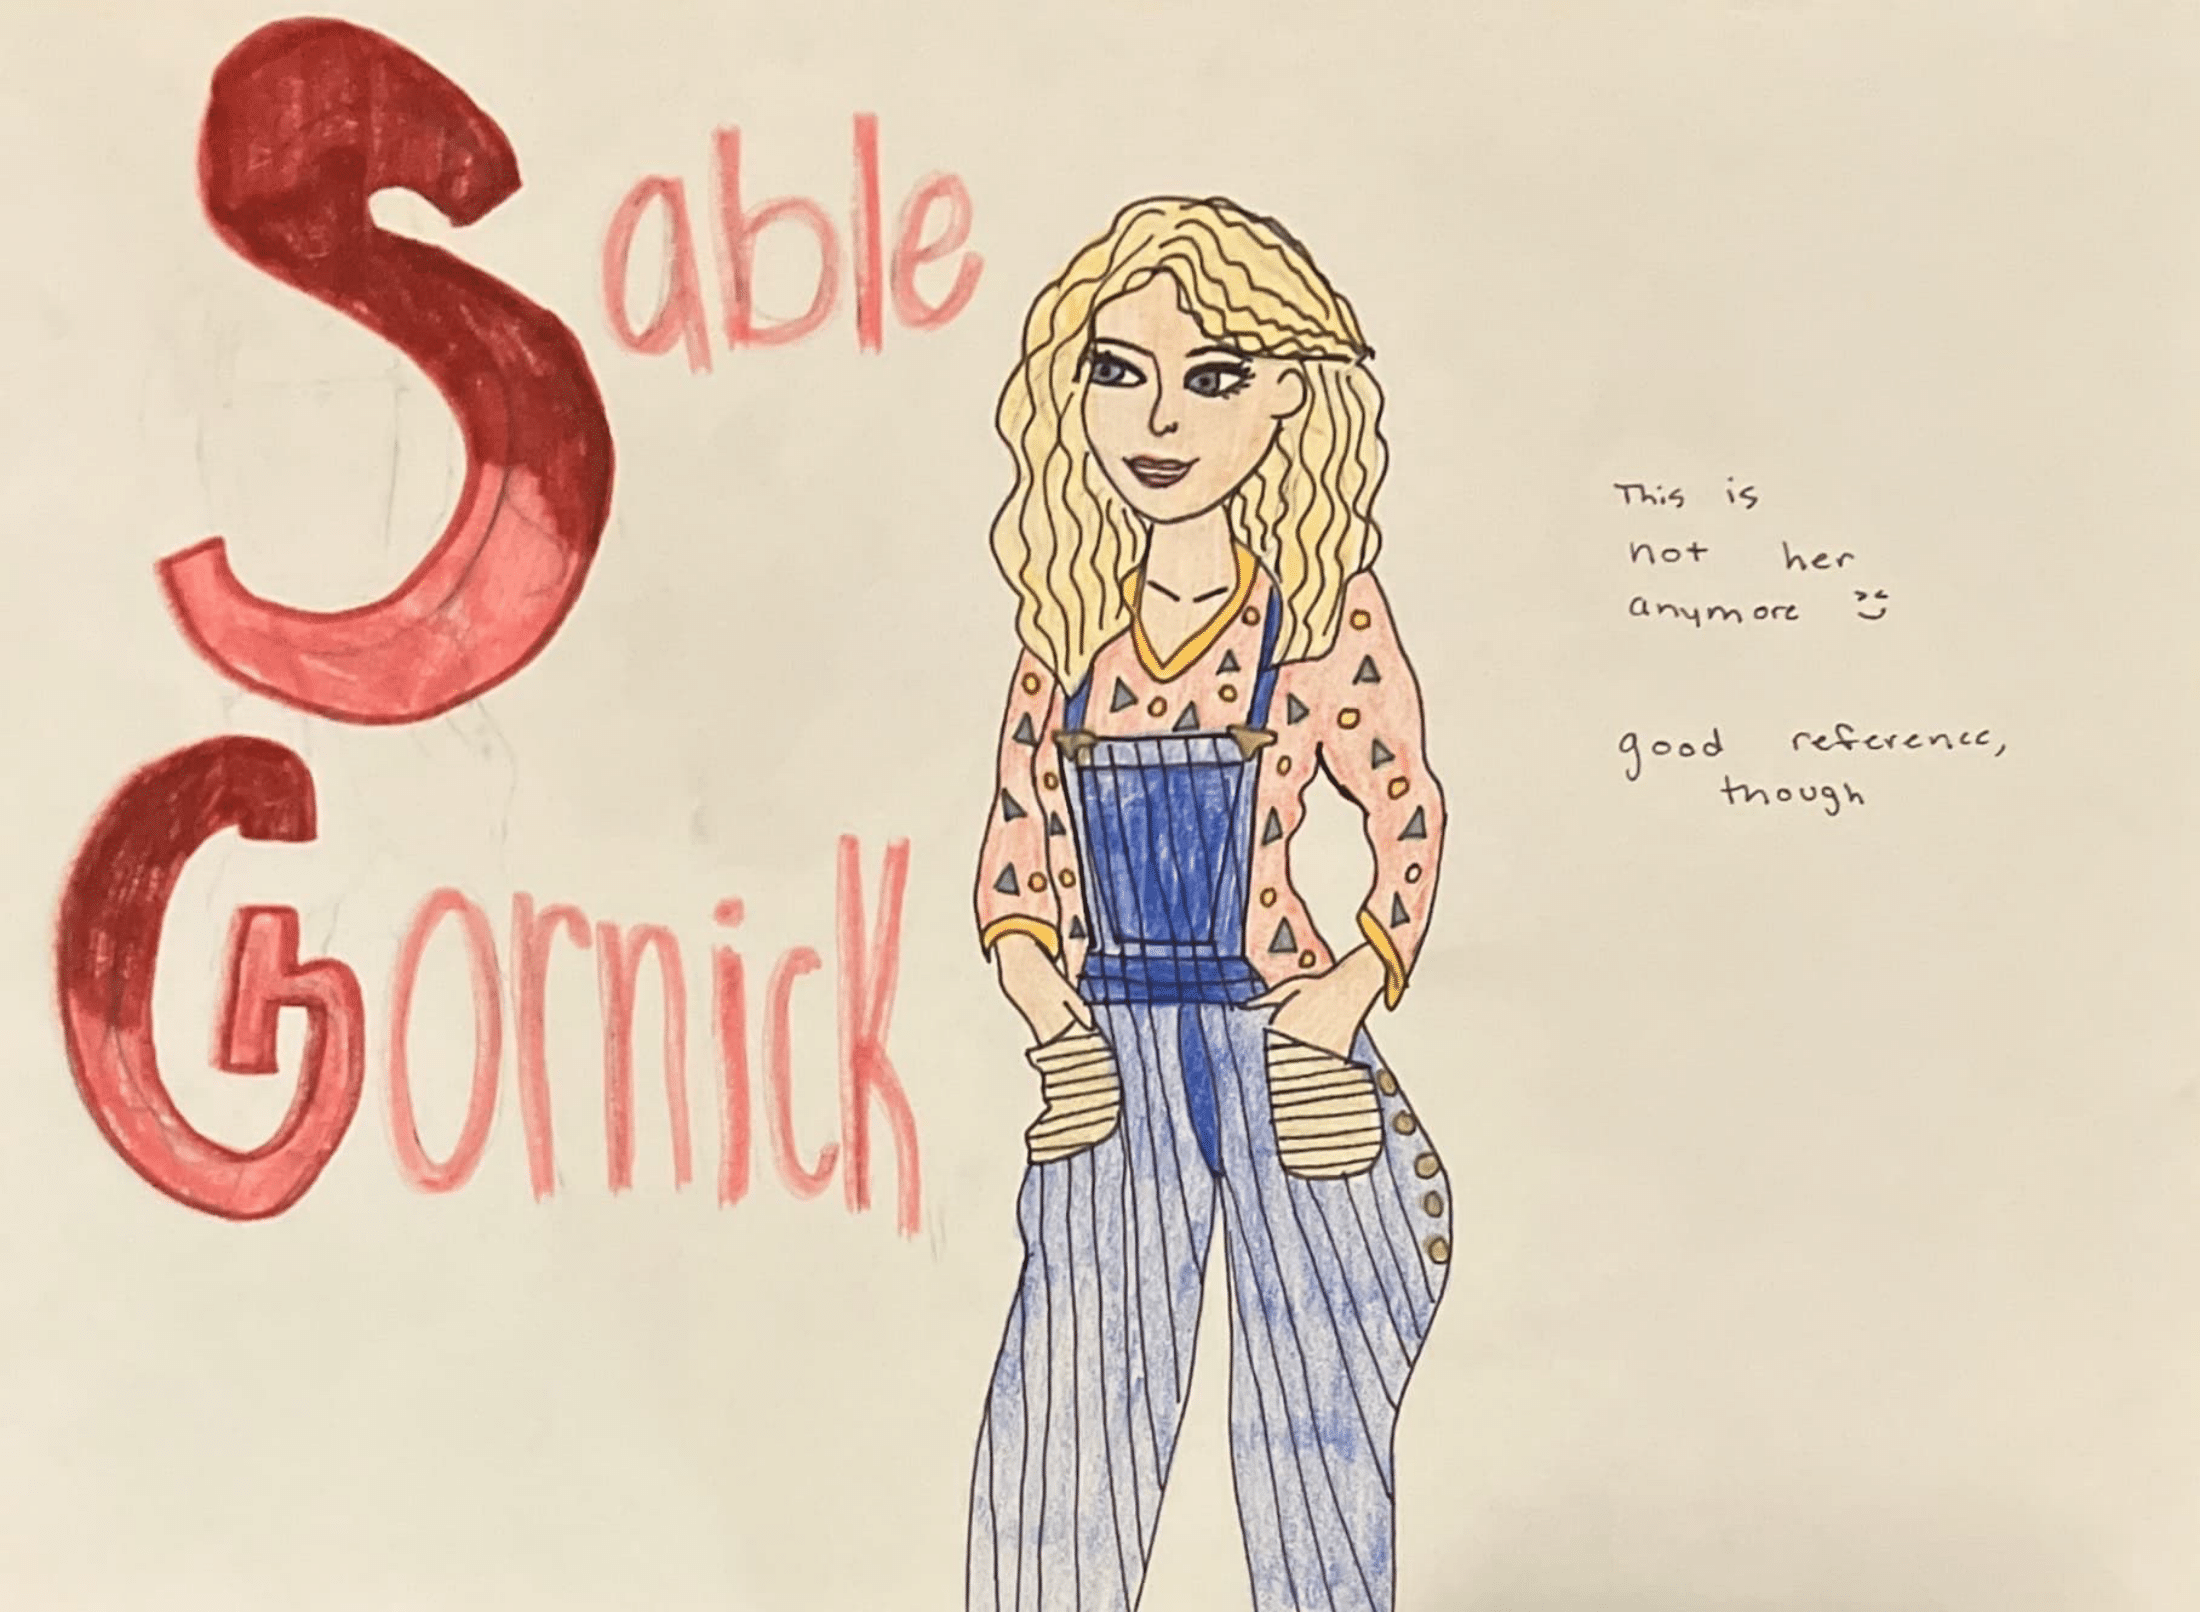 Sable
Gornick
This is
not her
anymore
good reference,
though